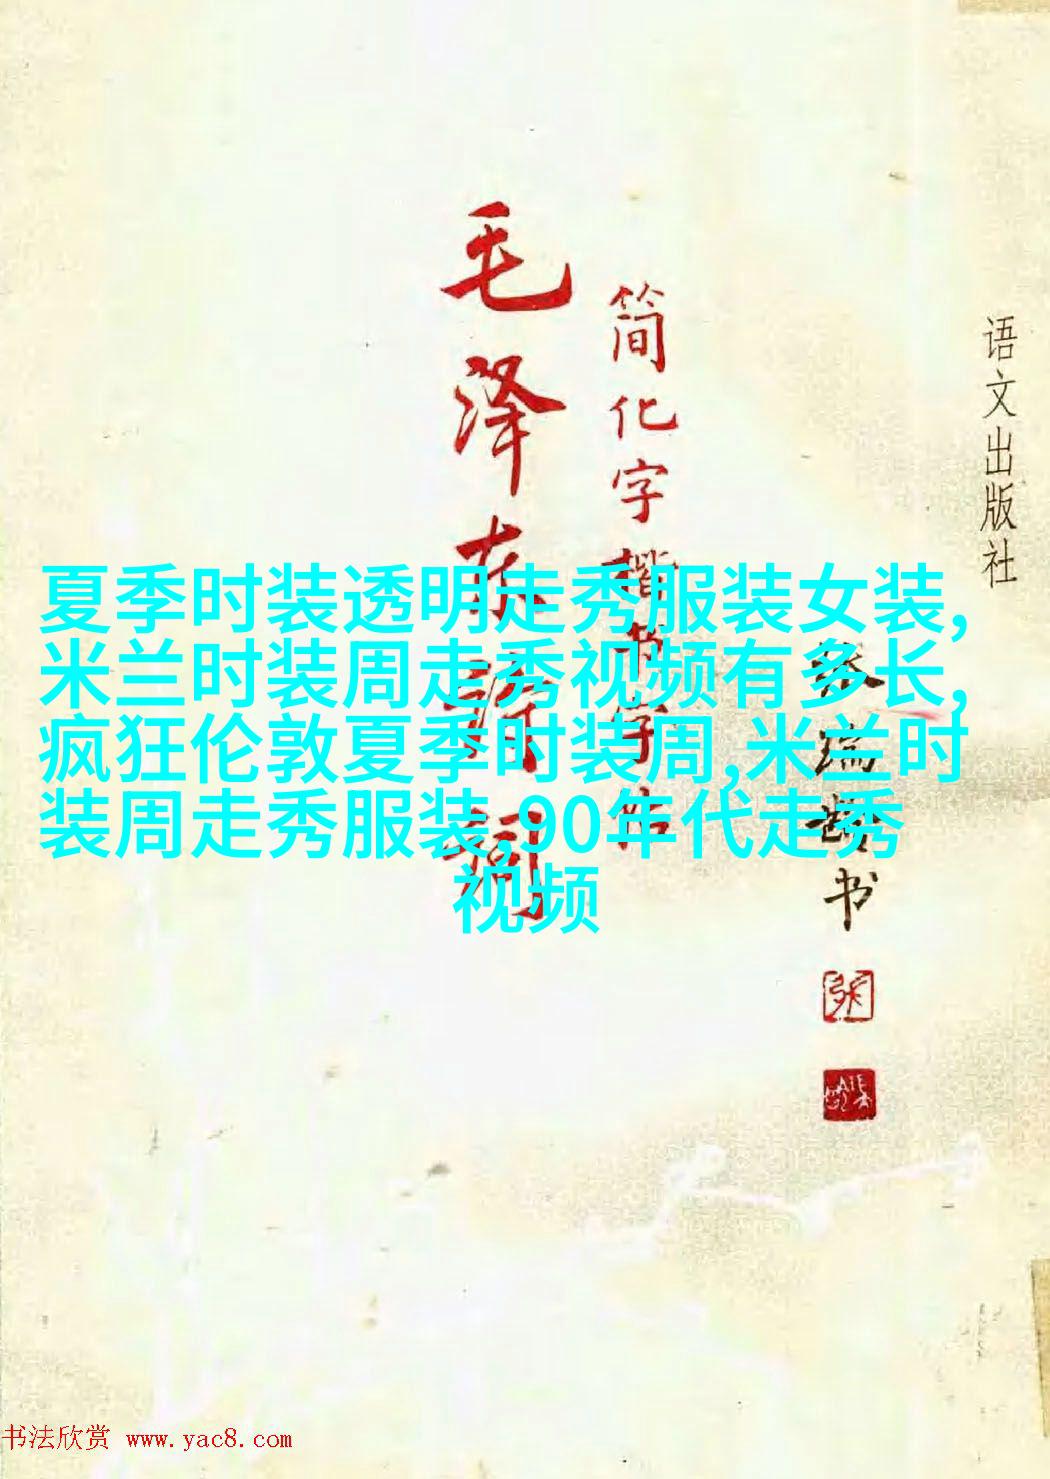 语文出版社
简化字楷书字帖
毛泽东诗词
张瑞龄书
夏季时装透明走秀服装女装,
米兰时装周走秀视频有多长,
疯狂伦敦夏季时装周,米兰时
装周走秀服装,90年代走秀
视频
书法欣赏 www.yac8.com